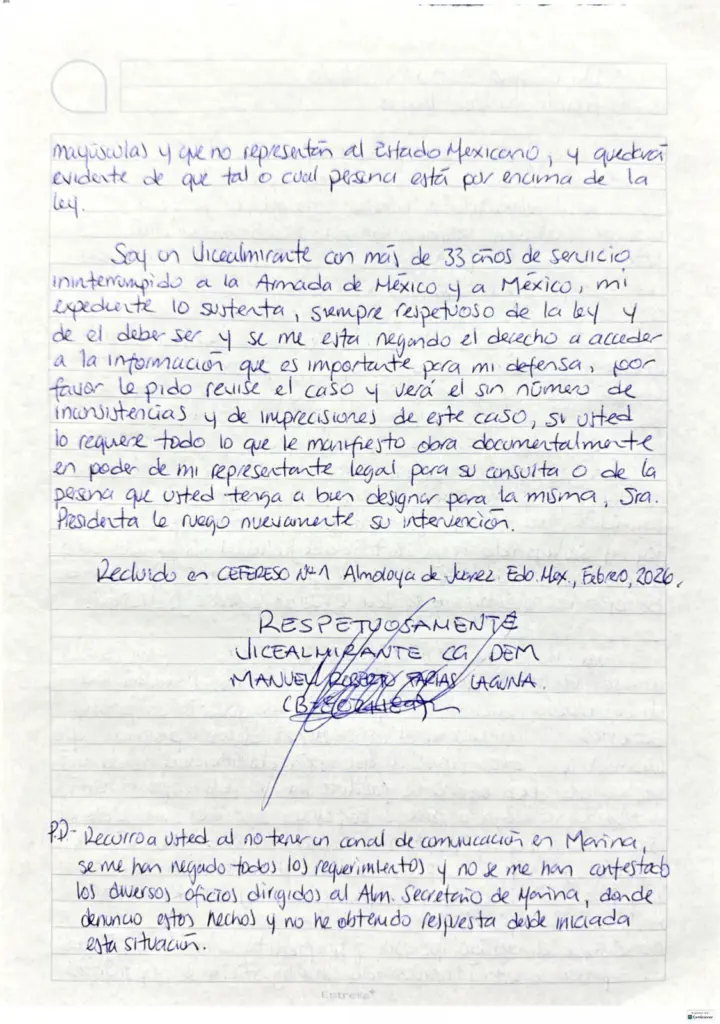 mayúsculas y que no representan al Estado Mexicano, y quedará
evidente de que tal o cual persona está por encima de la
ley.
Soy un Vicealmirante con más de 33 años de servicio
ininterrumpido a la Armada de México y a México, mi
expediente lo sustenta, siempre respetuoso de la ley y
de el deber ser y se me esta negando el derecho a acceder
a la información que es importante para mi defensa, por
favor le pido revise el caso y verá el sin número de
inconsistencias y de imprecisiones de este caso, si usted
lo requiere todo lo que le manifiesto obra documentalmente
en poder de mi representante legal para su consulta o de la
persona que usted tenga a bien designar para la misma, Sra.
Presidenta le ruego nuevamente su intervención.
Recluido en CEFERESO Nº1 Almoloya de Juarez Edo. Mex., Febrero, 2026.
RESPETUOSAMENTE
VICEALMIRANTE CG DEM
MANUEL ROBERTO FARIAS LAGUNA.
P.D.- Recurro a usted al no tener un canal de comunicación en Marina,
se me han negado todos los requerimientos y no se me han contestado
los diversos oficios dirigidos al Alm. Secretario de Marina, donde
denuncio estos hechos y no he obtenido respuesta desde iniciada
esta situación.
Estrella